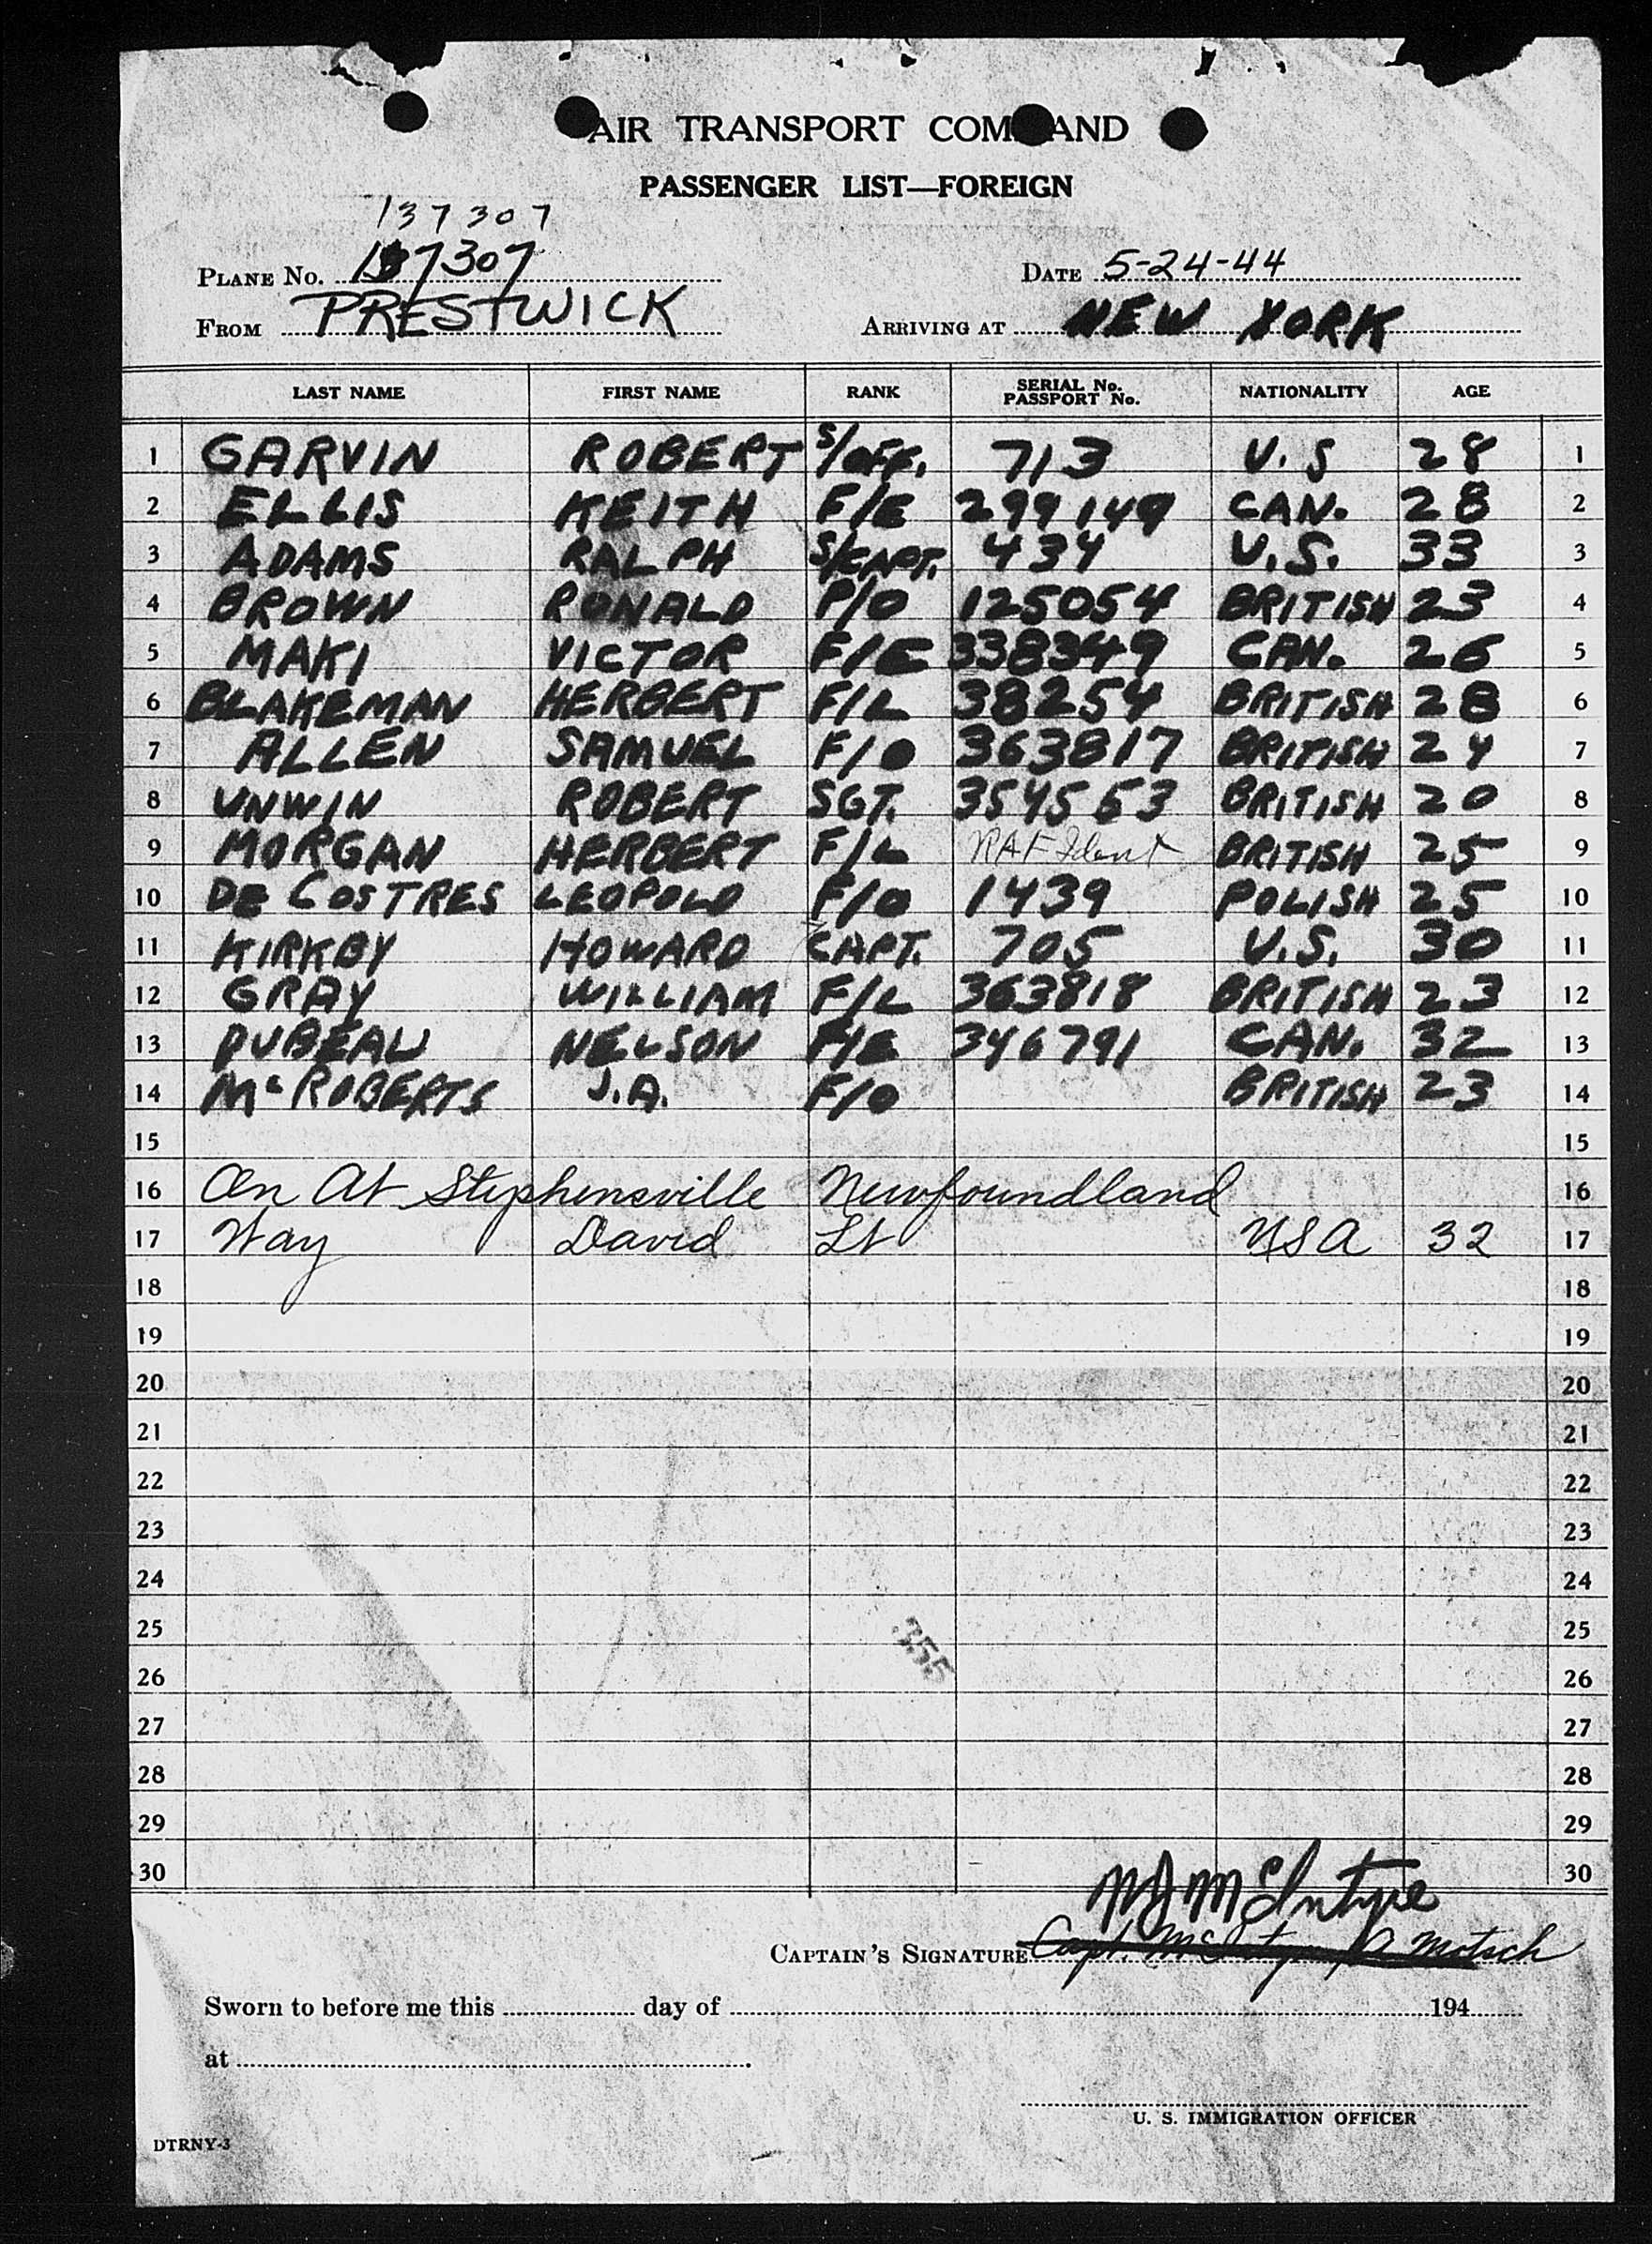 AIR TRANSPORT COMMAND
PASSENGER LIST—FOREIGN
137307
PLANE No. 137307 DATE 5-24-44
FROM PRESTWICK ARRIVING AT NEW YORK
LAST NAME FIRST NAME RANK SERIAL No. PASSPORT No. NATIONALITY AGE
1 GARVIN ROBERT S/OFF. 713 U.S 28 1
2 ELLIS KEITH F/E 299149 CAN. 28 2
3 ADAMS RALPH S/CAPT. 434 U.S. 33 3
4 BROWN RONALD P/O 125054 BRITISH 23 4
5 MAKI VICTOR F/E 338349 CAN. 26 5
6 BLAKEMAN HERBERT F/L 38254 BRITISH 28 6
7 ALLEN SAMUEL F/O 363817 BRITISH 24 7
8 UNWIN ROBERT SGT. 354553 BRITISH 20 8
9 MORGAN HERBERT F/L RAF Ident BRITISH 25 9
10 DE COSTRES LEOPOLD F/O 1439 POLISH 25 10
11 KIRKBY HOWARD CAPT. 705 U.S. 30 11
12 GRAY WILLIAM F/L 363818 BRITISH 23 12
13 DUBEAU NELSON F/E 346791 CAN. 32 13
14 McROBERTS J.A. F/O BRITISH 23 14
15 15
16 On At Stephensville Newfoundland 16
17 Way David Lt USA 32 17
18 18
19 19
20 20
21 21
22 22
23 23
24 24
25 25
355
26 26
27 27
28 28
29 29
30 30
McIntyre
CAPTAIN'S SIGNATURE Capt. McIntyre Motsch
Sworn to before me this day of 194
at .
U. S. IMMIGRATION OFFICER
DTRNY-3